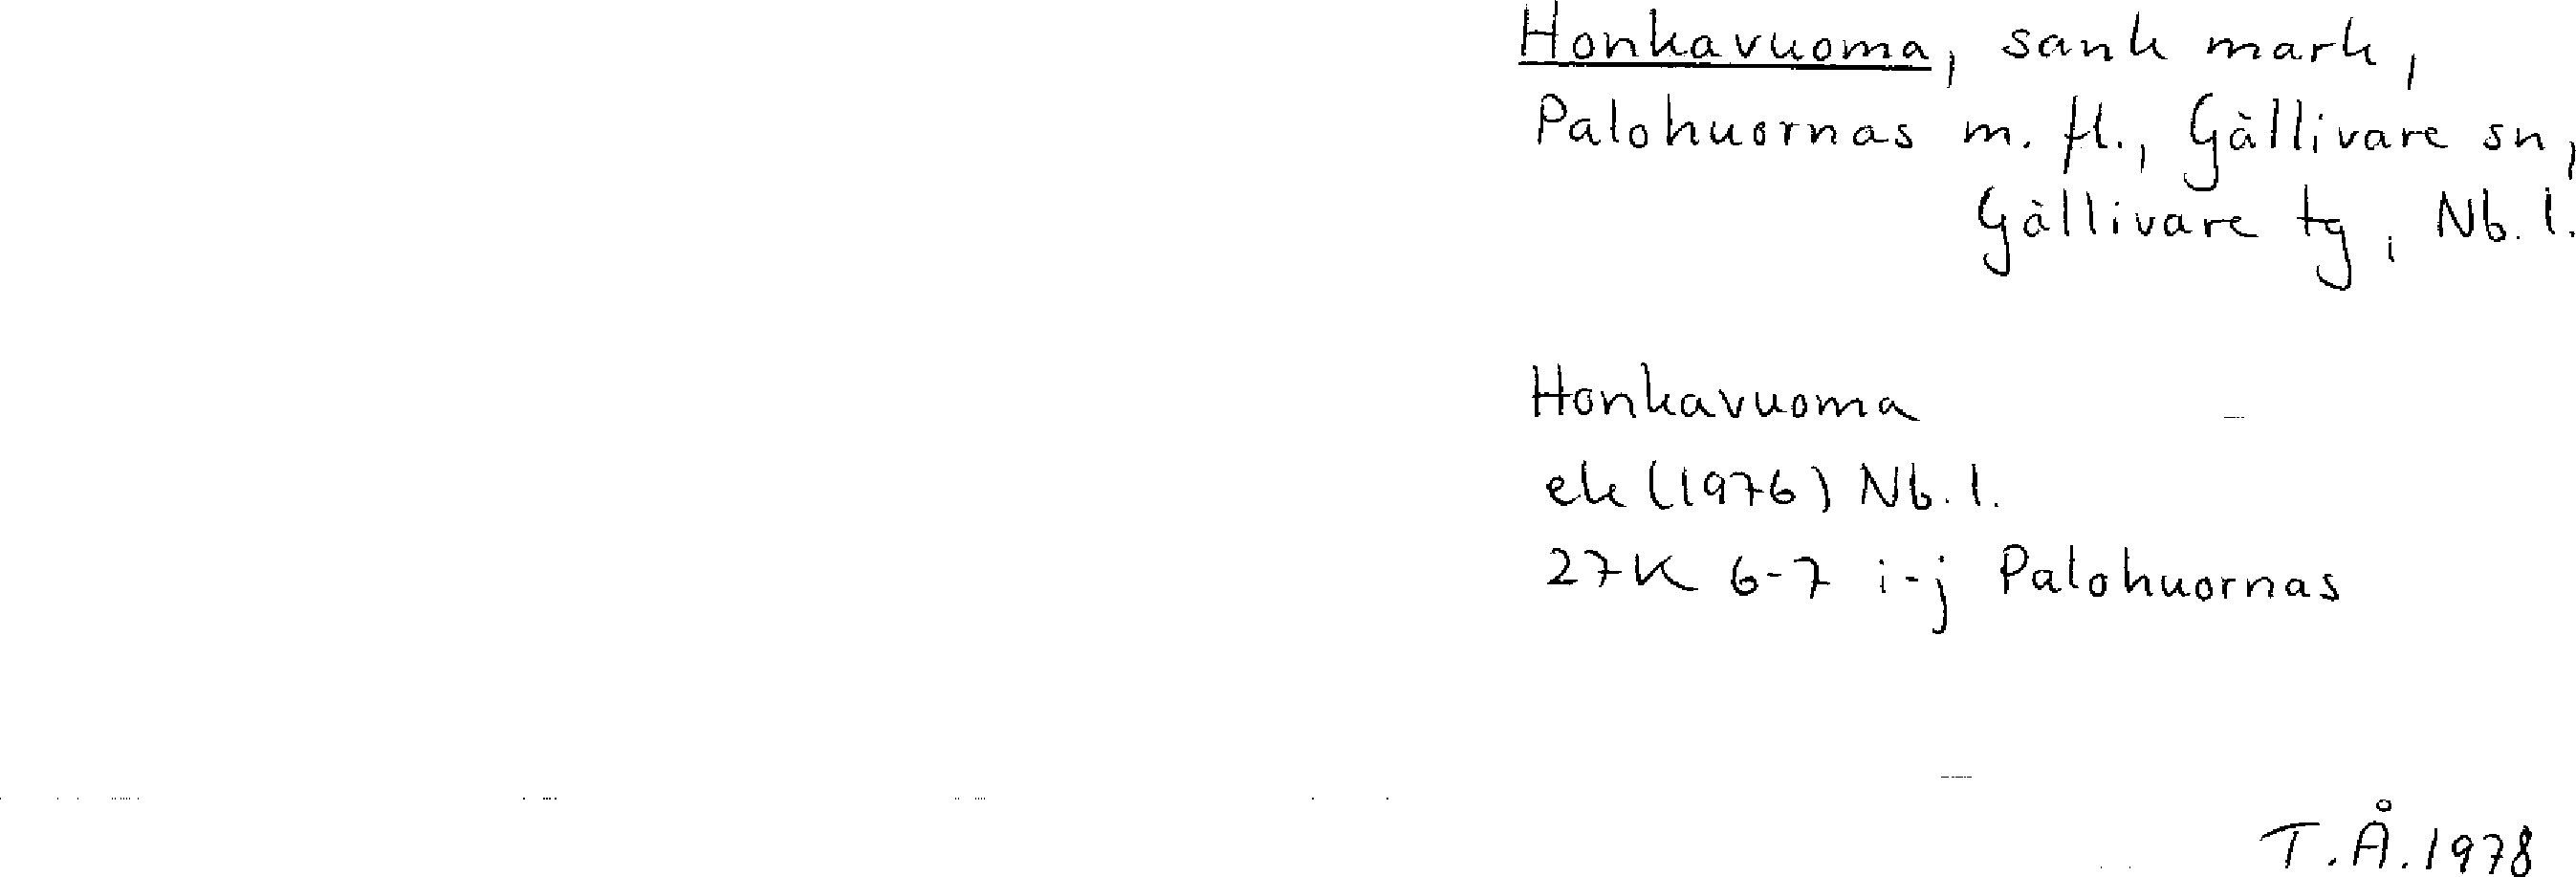 Honkavuoma, sank mark,
Palohuornas m. fl., Gällivare sn,
Gällivare tg, Nb. l.
Honkavuoma
ek (1976) Nb. l.
27K 6-7 i-j Palohuornas
T.Å. 1978